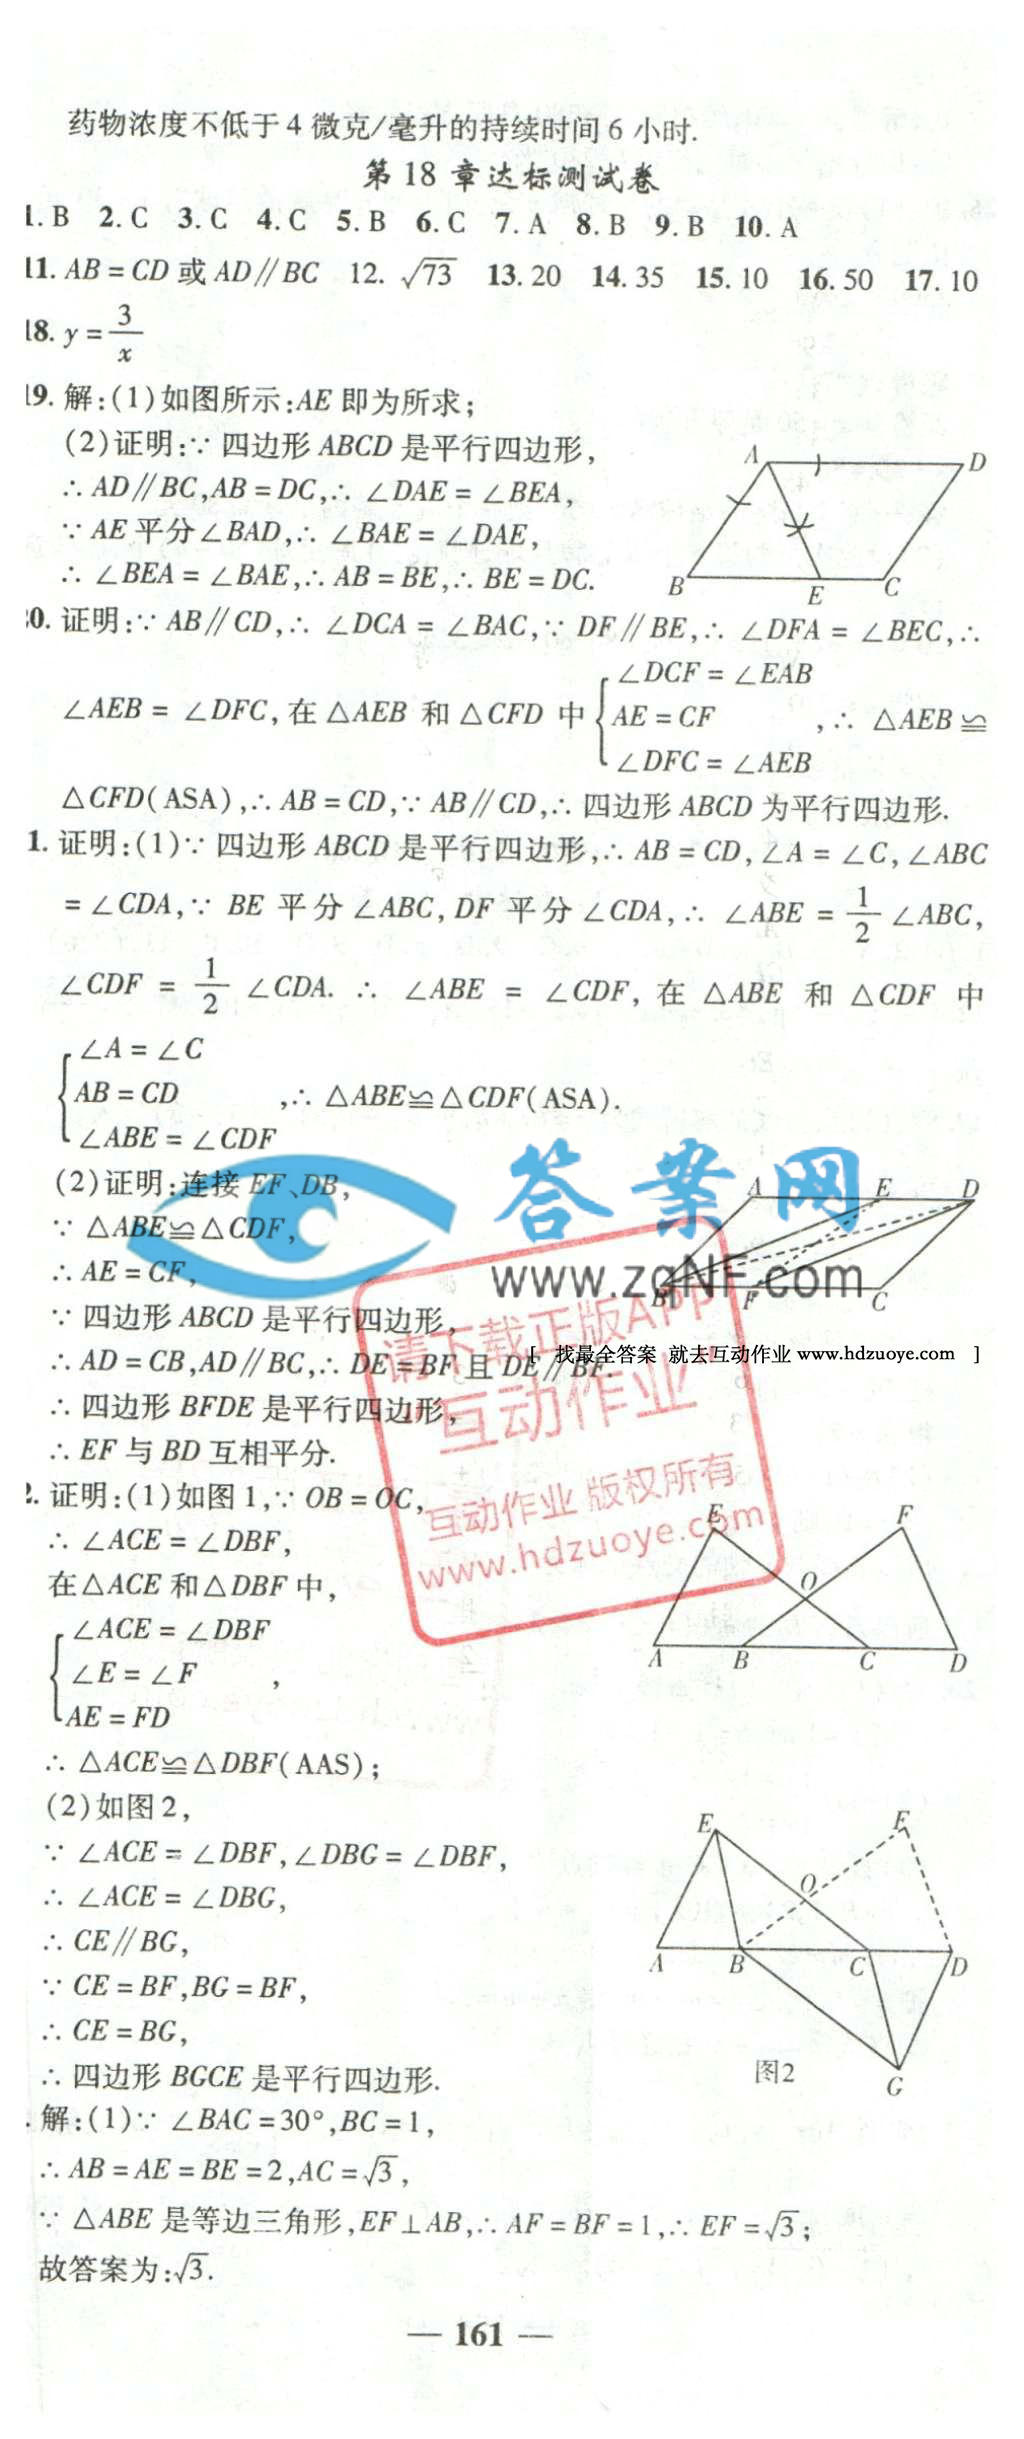 药物浓度不低于4微克/毫升的持续时间6小时.
第18章达标测试卷
1. B 2. C 3. C 4. C 5. B 6. C 7. A 8. B 9. B 10. A
11. AB=CD或AD∥BC 12. √73 13. 20 14. 35 15. 10 16. 50 17. 10
18. y=3/x
19. 解:(1)如图所示:AE即为所求;
(2)证明:∵四边形ABCD是平行四边形,
∴AD∥BC,AB=DC,∴∠DAE=∠BEA,
∵AE平分∠BAD,∴∠BAE=∠DAE,
∴∠BEA=∠BAE,∴AB=BE,∴BE=DC.
A D
B E C
0. 证明:∵AB∥CD,∴∠DCA=∠BAC,∵DF∥BE,∴∠DFA=∠BEC,∴
∠DCF=∠EAB
∠AEB=∠DFC,在△AEB和△CFD中{AE=CF ,∴△AEB≌
∠DFC=∠AEB
△CFD(ASA),∴AB=CD,∵AB∥CD,∴四边形ABCD为平行四边形.
1. 证明:(1)∵四边形ABCD是平行四边形,∴AB=CD,∠A=∠C,∠ABC
=∠CDA,∵BE平分∠ABC,DF平分∠CDA,∴∠ABE=1/2∠ABC,
∠CDF=1/2∠CDA.∴∠ABE=∠CDF,在△ABE和△CDF中
∠A=∠C
{AB=CD ,∴△ABE≌△CDF(ASA).
∠ABE=∠CDF
答案网
www.zqNF.com
(2)证明:连接EF、DB,
∵△ABE≌△CDF,
∴AE=CF,
∵四边形ABCD是平行四边形,
∴AD=CB,AD∥BC,∴DE=BF且DE∥BF.
∴四边形BFDE是平行四边形,
∴EF与BD互相平分.
A E D
B F C
[ 找最全答案 就去互动作业 www.hdzuoye.com ]
请下载正版APP
"互动作业"
互动作业 版权所有
www.hdzuoye.com
2. 证明:(1)如图1,∵OB=OC,
∴∠ACE=∠DBF,
在△ACE和△DBF中,
∠ACE=∠DBF
{∠E=∠F ,
AE=FD
∴△ACE≌△DBF(AAS);
E F
O
A B C D
(2)如图2,
∵∠ACE=∠DBF,∠DBG=∠DBF,
∴∠ACE=∠DBG,
∴CE∥BG,
∵CE=BF,BG=BF,
∴CE=BG,
∴四边形BGCE是平行四边形.
E F
O
A B C D
图2
G
. 解:(1)∵∠BAC=30°,BC=1,
∴AB=AE=BE=2,AC=√3,
∵△ABE是等边三角形,EF⊥AB,∴AF=BF=1,∴EF=√3;
故答案为:√3.
— 161 —